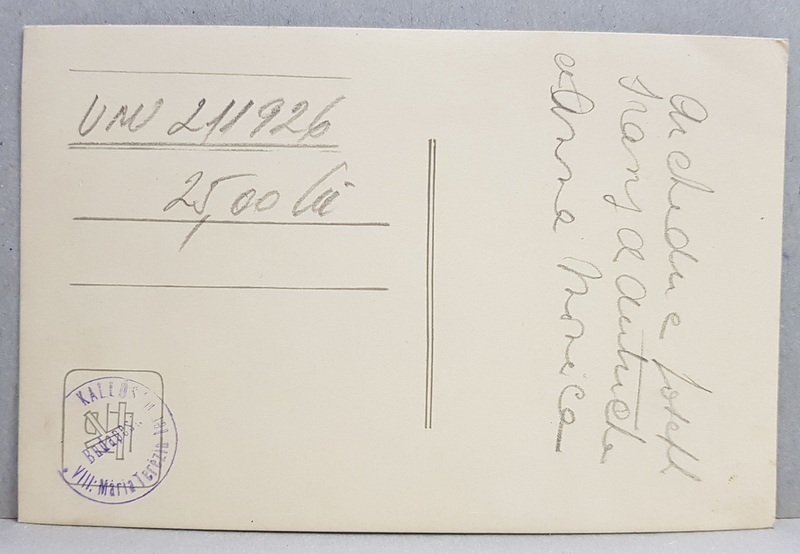 UMV 211926
25,00 lei
Archeduc Joseph
Franz d'autriche
et Anna Monica
KALLÓS
Budapest
VIII. Mária Terézia tér